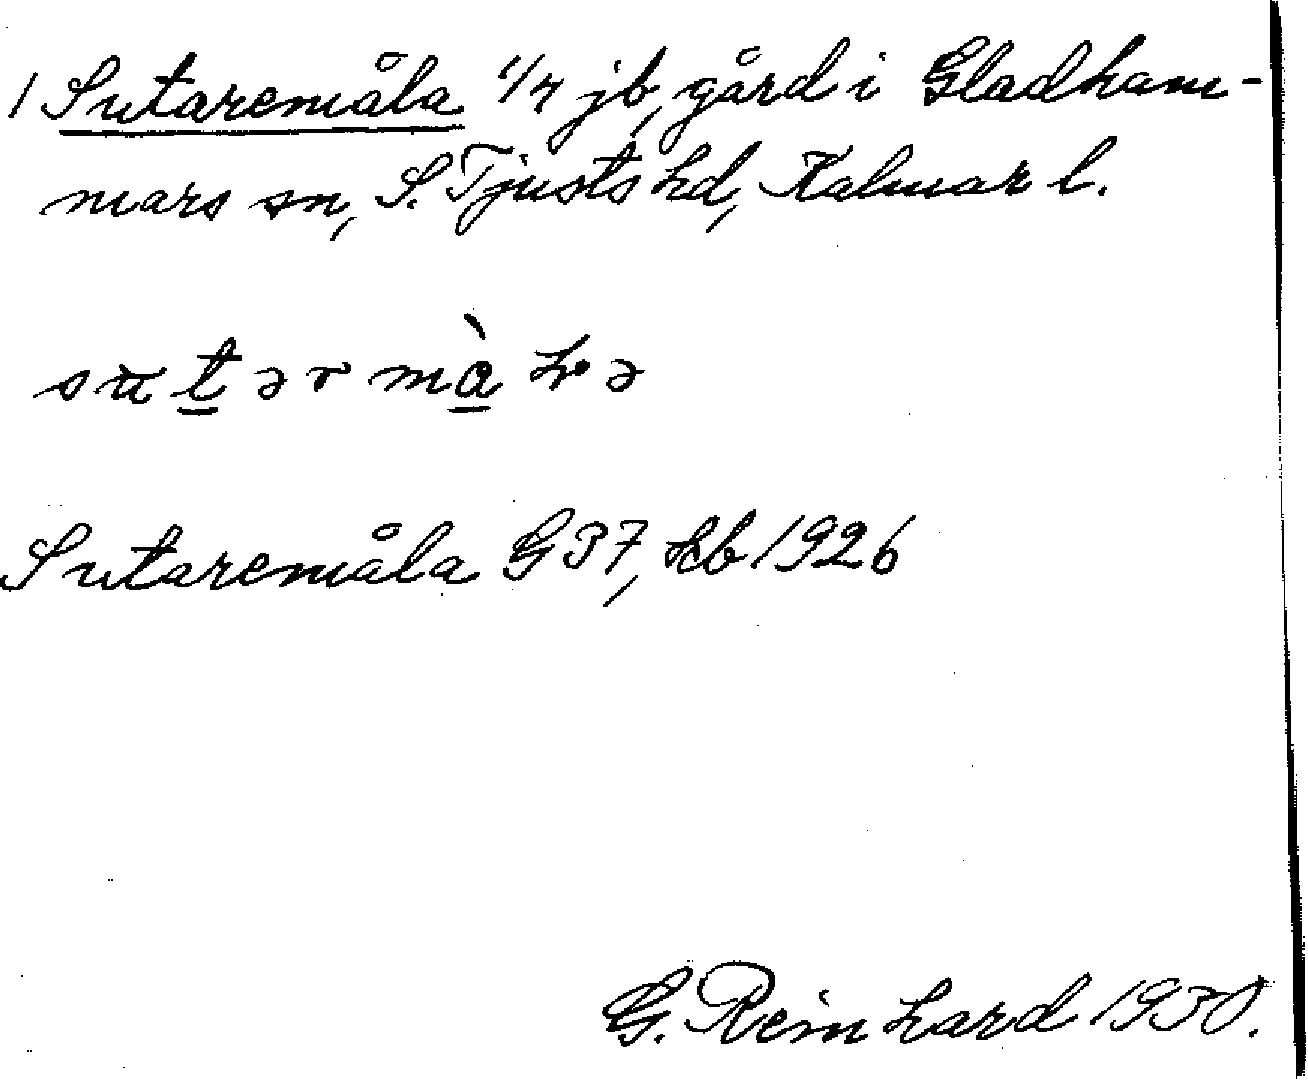 / Sutaremåla 1/4 jb, gård i Gladham-
mars sn, S. Tjusts hd, Kalmar l.
Sutaremåla G 37, kb 1926
G. Reinhard 1930.